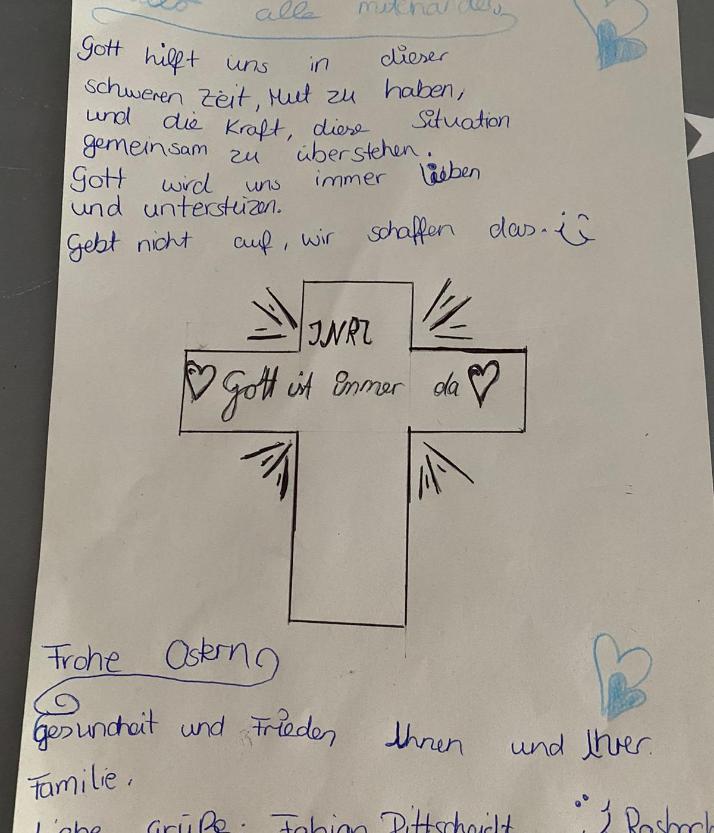 alle miteinander
Gott hilft uns in dieser
schweren Zeit, Mut zu haben,
und die Kraft, diese Situation
gemeinsam zu überstehen.
Gott wird uns immer lieben
und unterstüzen.
Gebt nicht auf, wir schaffen das.
JNRI
Gott ist immer da
Frohe Ostern
Gesundheit und Frieden Ihnen und Ihrer
Familie.
Liebe Grüße: Fabian Dittscheidt